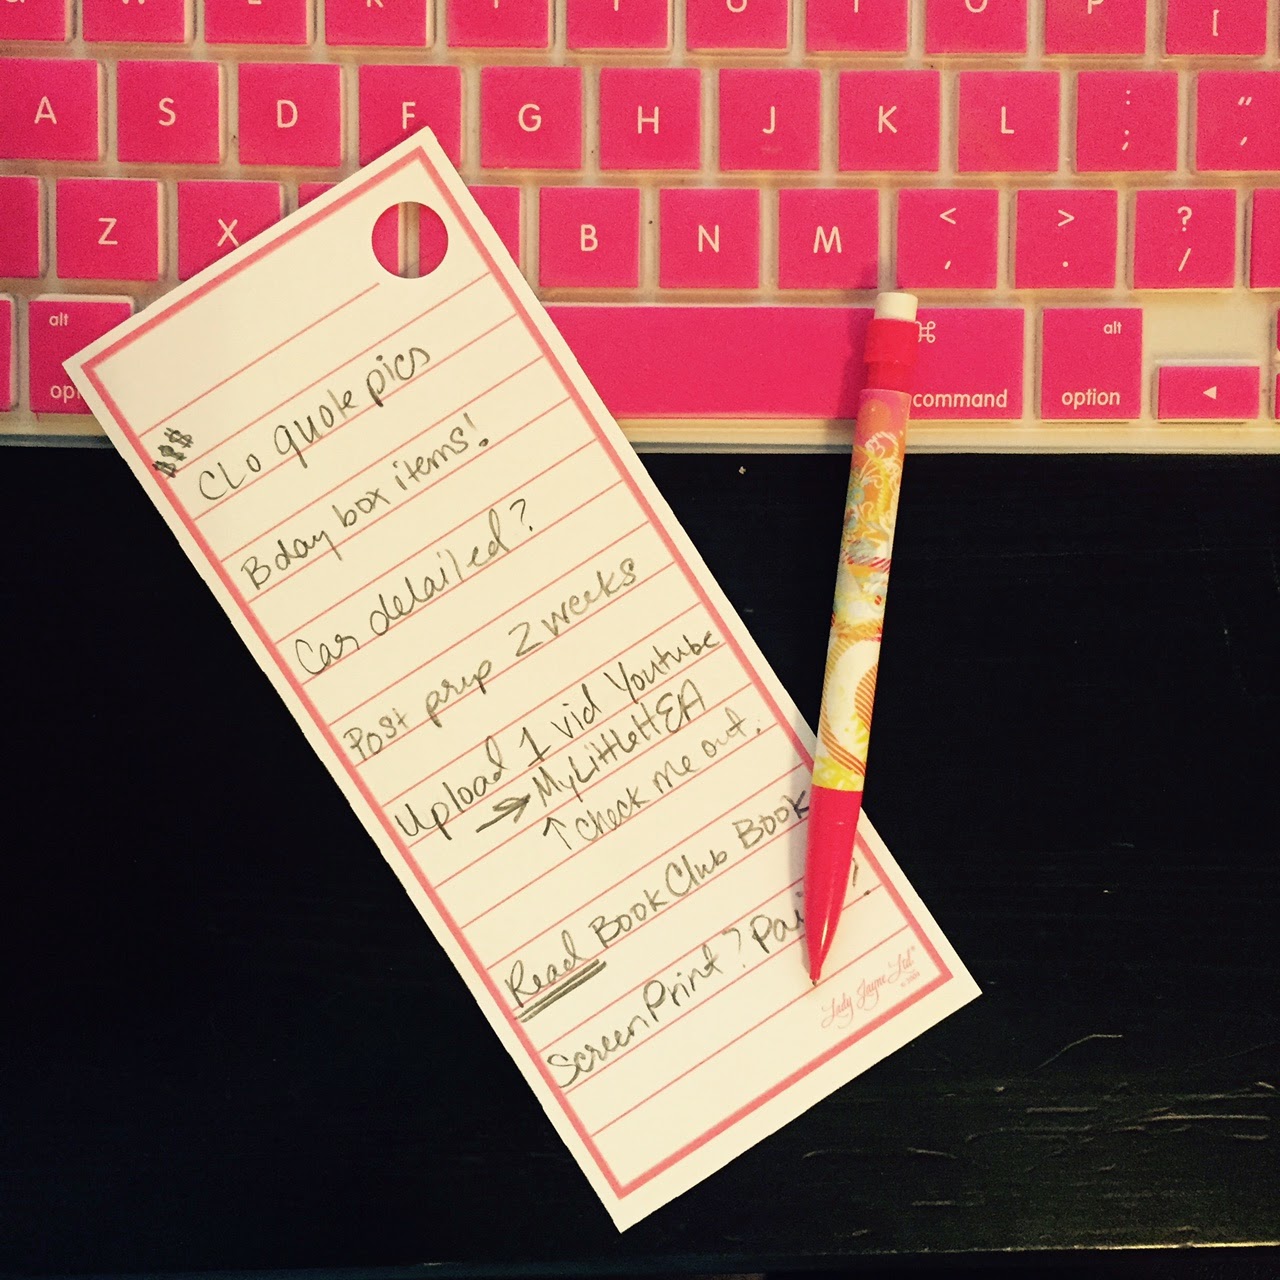 A S D F G H J K L : ; " '
Z X B N M < , > . ? /
alt ⌘ command alt option ◄
$$$
CLo quote pics
Bday box items!
Car detailed?
Post prep 2 weeks
Upload 1 vid Youtube
→ MyLittleHEA
↑ check me out.
Read BookClub Book
ScreenPrint?
Lady Jayne Ltd®